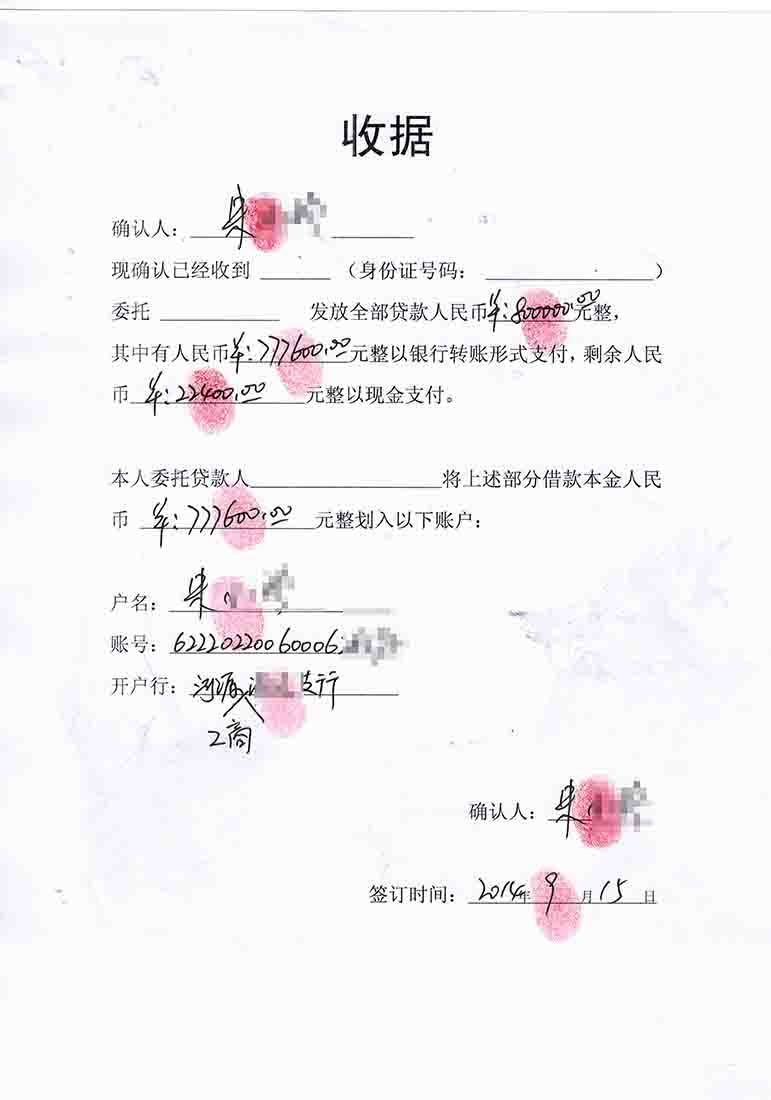 收据
确认人：
现确认已经收到 （身份证号码： ）
委托 发放全部贷款人民币¥:800000.00元整，
其中有人民币¥:777600.00元整以银行转账形式支付，剩余人民
币¥:22400.00元整以现金支付。
本人委托贷款人 将上述部分借款本金人民
币 ¥:777600.00 元整划入以下账户：
户名：
账号：62220220060006
开户行：河源 支行
工商
确认人：
签订时间：2014年9月15日